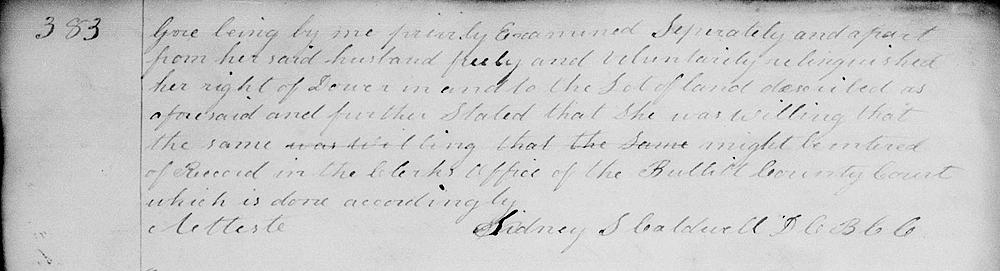 383
Gore being by me privily Examined Seperately and apart
from her said husband freely and Voluntarily relinquished
her right of Dower in and to the Lot of land described as
aforesaid and further Stated that She was willing that
the same was willing that the same might be entered
of Record in the Clerks Office of the Bullitt County Court
which is done accordingly
Atteste Sidney S Caldwell D C B C C